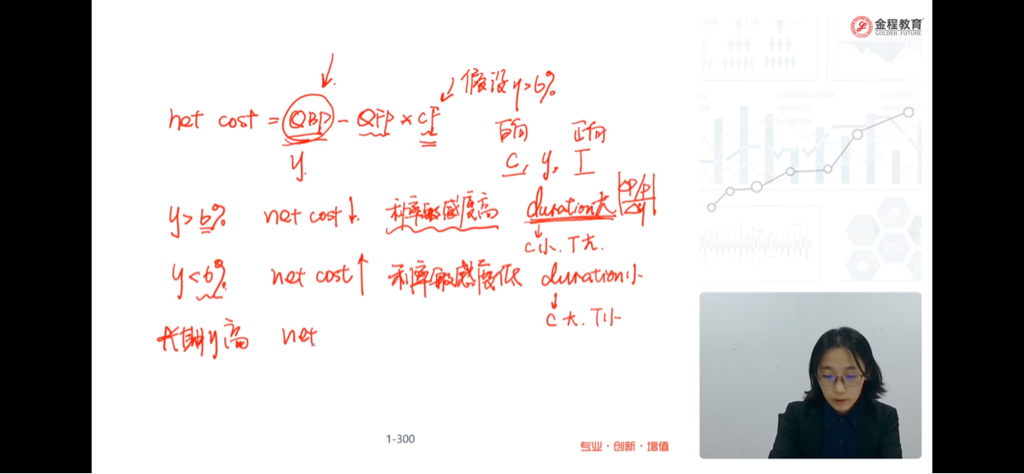 金程教育
GOLDEN FUTURE
假设y>6%
net cost = QBP - QFP × CF
反向 正向
y C, y, T
y>6% net cost↓ 利率敏感度高 duration大 |ΔP/P / Δy|
C小. T大.
y<6% net cost↑ 利率敏感度低 duration小
C大. T小
长期y高 net
1-300
专业·创新·增值